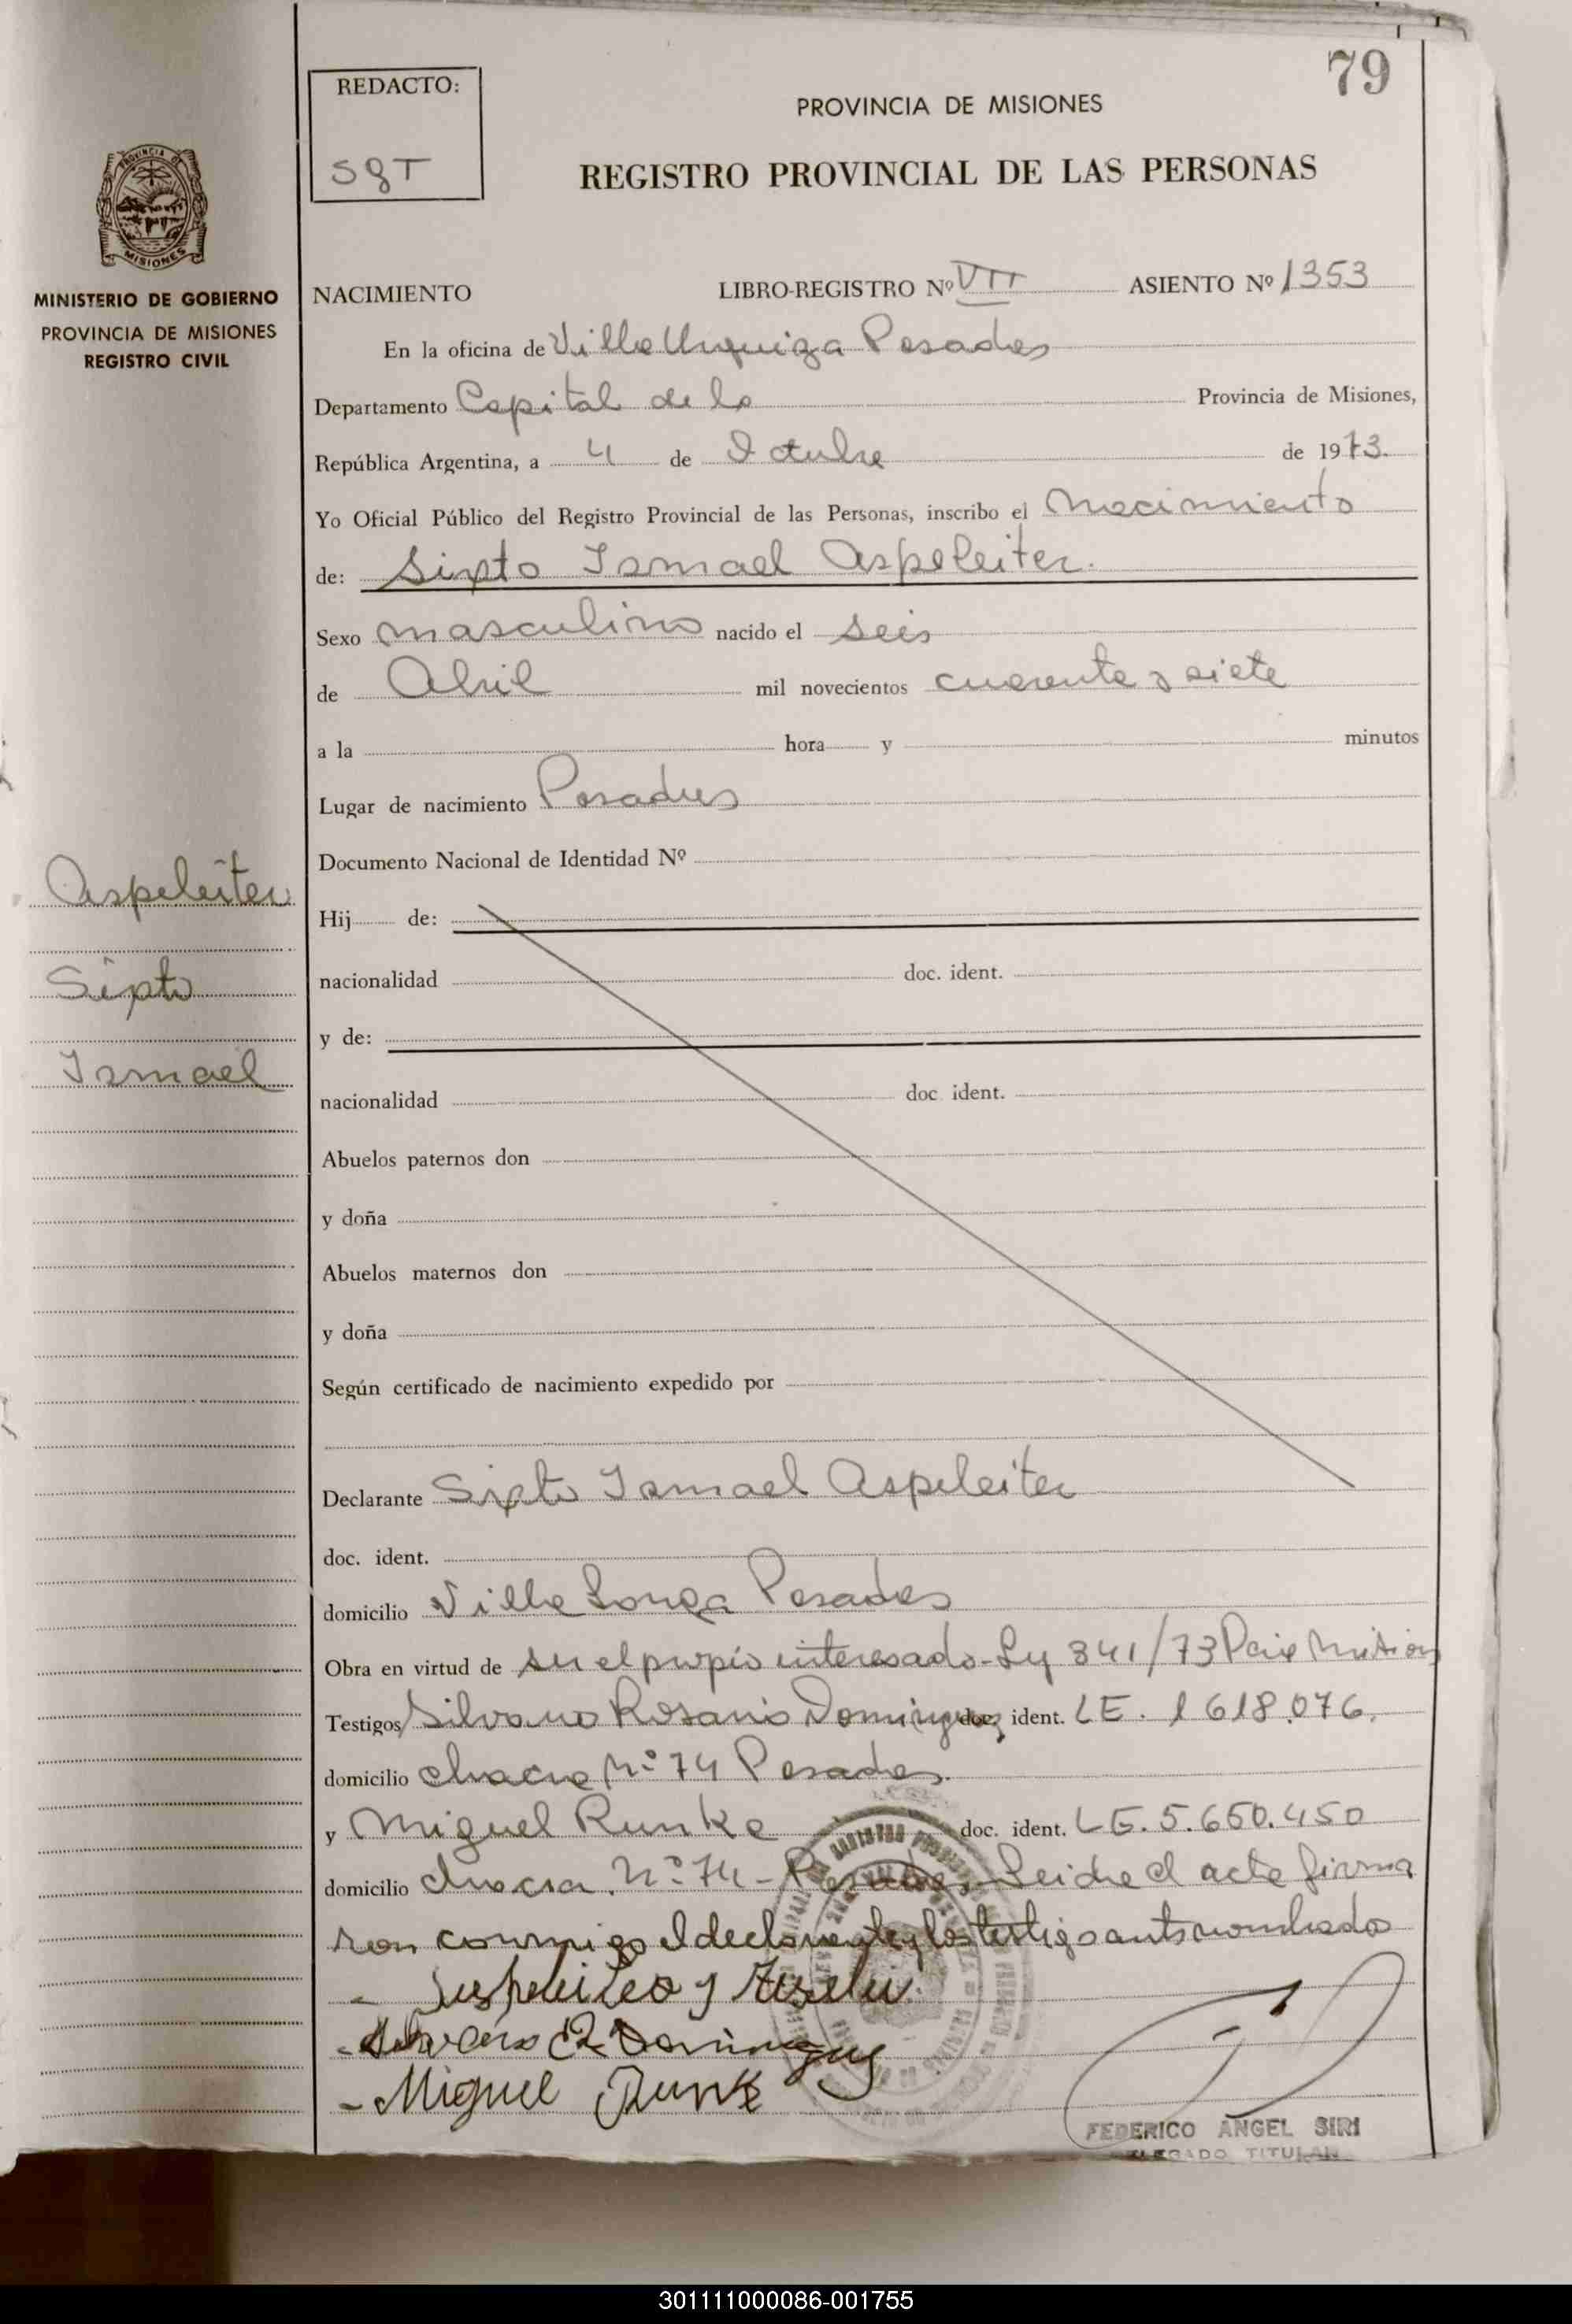 79
REDACTO:
SgT
PROVINCIA DE MISIONES
REGISTRO PROVINCIAL DE LAS PERSONAS
MISIONES
MINISTERIO DE GOBIERNO
PROVINCIA DE MISIONES
REGISTRO CIVIL
NACIMIENTO LIBRO-REGISTRO Nº VII ASIENTO Nº 1353
En la oficina de Villa Urquiza Posadas
Departamento Capital de la Provincia de Misiones,
República Argentina, a 4 de Octubre de 1973.
Yo Oficial Público del Registro Provincial de las Personas, inscribo el Nacimiento
de: Sixto Ismael Aspeleiter.
Sexo masculino nacido el seis
de Abril mil novecientos cuarenta y siete
a la hora y minutos
Lugar de nacimiento Posadas
Documento Nacional de Identidad Nº
Aspeleiter
Sixto
Ismael
Hij de:
nacionalidad doc. ident.
y de:
nacionalidad doc ident.
Abuelos paternos don
y doña
Abuelos maternos don
y doña
Según certificado de nacimiento expedido por
Declarante Sixto Ismael Aspeleiter
doc. ident.
domicilio Villa Longa Posadas
Obra en virtud de ser el propio interesado - Ley 341/73
Testigos Silvano Rosario Dominguez doc. ident. LE. 1618.076.
domicilio chacra Nº 74 Posadas.
y Miguel Runke doc. ident. LE. 5.650.450
domicilio chacra. Nº 74 - Posadas - Leida el acta firma
ron conmigo el declarante y los testigo antes nombrados
Dominguez
- Miguel Runke
FEDERICO ANGEL SIRI
DELEGADO TITULAR
301111000086-001755